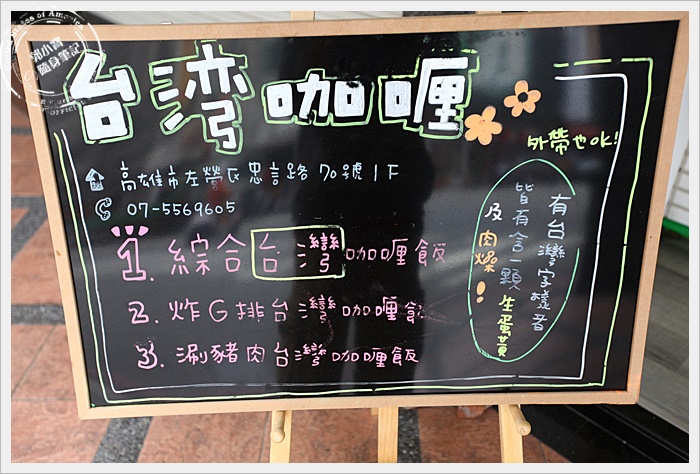 郭小寶
隨身筆記
台湾咖喱
外帶也ok!
高雄市左營區忠言路70號1F
07-5569605
1. 綜合台灣咖喱飯
2. 炸G排台灣咖喱飯
3. 涮豬肉台灣咖喱飯
有台灣字樣者
皆有含一顆生蛋黃
及肉燥!